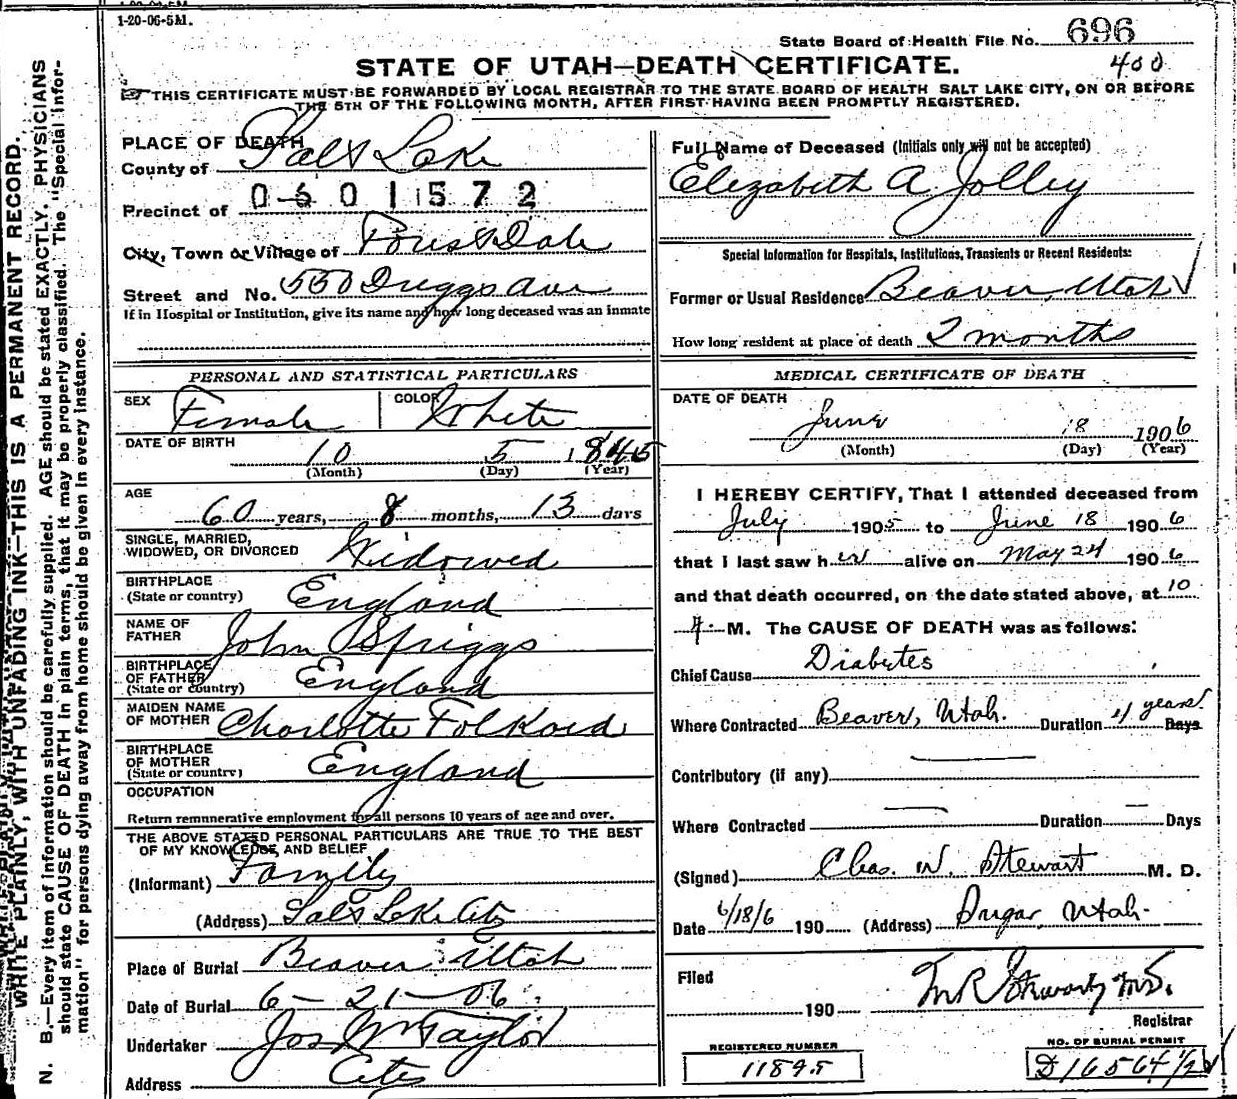 1-20-06-5M.
State Board of Health File No. 696
400
STATE OF UTAH—DEATH CERTIFICATE.
THIS CERTIFICATE MUST BE FORWARDED BY LOCAL REGISTRAR TO THE STATE BOARD OF HEALTH SALT LAKE CITY, ON OR BEFORE
THE 5TH OF THE FOLLOWING MONTH, AFTER FIRST HAVING BEEN PROMPTLY REGISTERED.
WRITE PLAINLY, WITH UNFADING INK—THIS IS A PERMANENT RECORD.
N. B.—Every item of information should be carefully supplied. AGE should be stated EXACTLY. PHYSICIANS
should state CAUSE OF DEATH in plain terms, that it may be properly classified. The "Special Infor-
mation" for persons dying away from home should be given in every instance.
PLACE OF DEATH
County of Salt Lake
0601572
Precinct of
City, Town or Village of Forest Dale
Street and No. 550 Driggs Ave
If in Hospital or Institution, give its name and how long deceased was an inmate
PERSONAL AND STATISTICAL PARTICULARS
SEX Female COLOR White
DATE OF BIRTH 10 5 1845
(Month) (Day) (Year)
AGE
60 years, 8 months, 13 days
SINGLE, MARRIED,
WIDOWED, OR DIVORCED Widowed
BIRTHPLACE
(State or country) England
NAME OF
FATHER John Spriggs
BIRTHPLACE
OF FATHER
(State or country) England
MAIDEN NAME
OF MOTHER Charlotte Folkard
BIRTHPLACE
OF MOTHER
(State or country) England
OCCUPATION
Return remunerative employment for all persons 10 years of age and over.
THE ABOVE STATED PERSONAL PARTICULARS ARE TRUE TO THE BEST
OF MY KNOWLEDGE AND BELIEF
(Informant) Family
(Address) Salt Lake City
Place of Burial Beaver Utah
Date of Burial 6-21-06.
Undertaker Jos Wm Taylor
Address City
Full Name of Deceased (Initials only will not be accepted)
Elizabeth A Jolley
Special Information for Hospitals, Institutions, Transients or Recent Residents:
Former or Usual Residence Beaver, Utah
How long resident at place of death 2 months
MEDICAL CERTIFICATE OF DEATH
DATE OF DEATH
June 18 1906
(Month) (Day) (Year)
I HEREBY CERTIFY, That I attended deceased from
July 1905 to June 18 1906
that I last saw her alive on May 24 1906
and that death occurred, on the date stated above, at 10
A. M. The CAUSE OF DEATH was as follows:
Chief Cause Diabetes
Where Contracted Beaver, Utah. Duration 4 years. Days
Contributory (if any)
Where Contracted Duration — Days
(Signed) Chas. W. Stewart M. D.
Date 6/18/6 190 (Address) Sugar, Utah.
Filed
190
Registrar
REGISTERED NUMBER
11895
NO. OF BURIAL PERMIT
D16564½